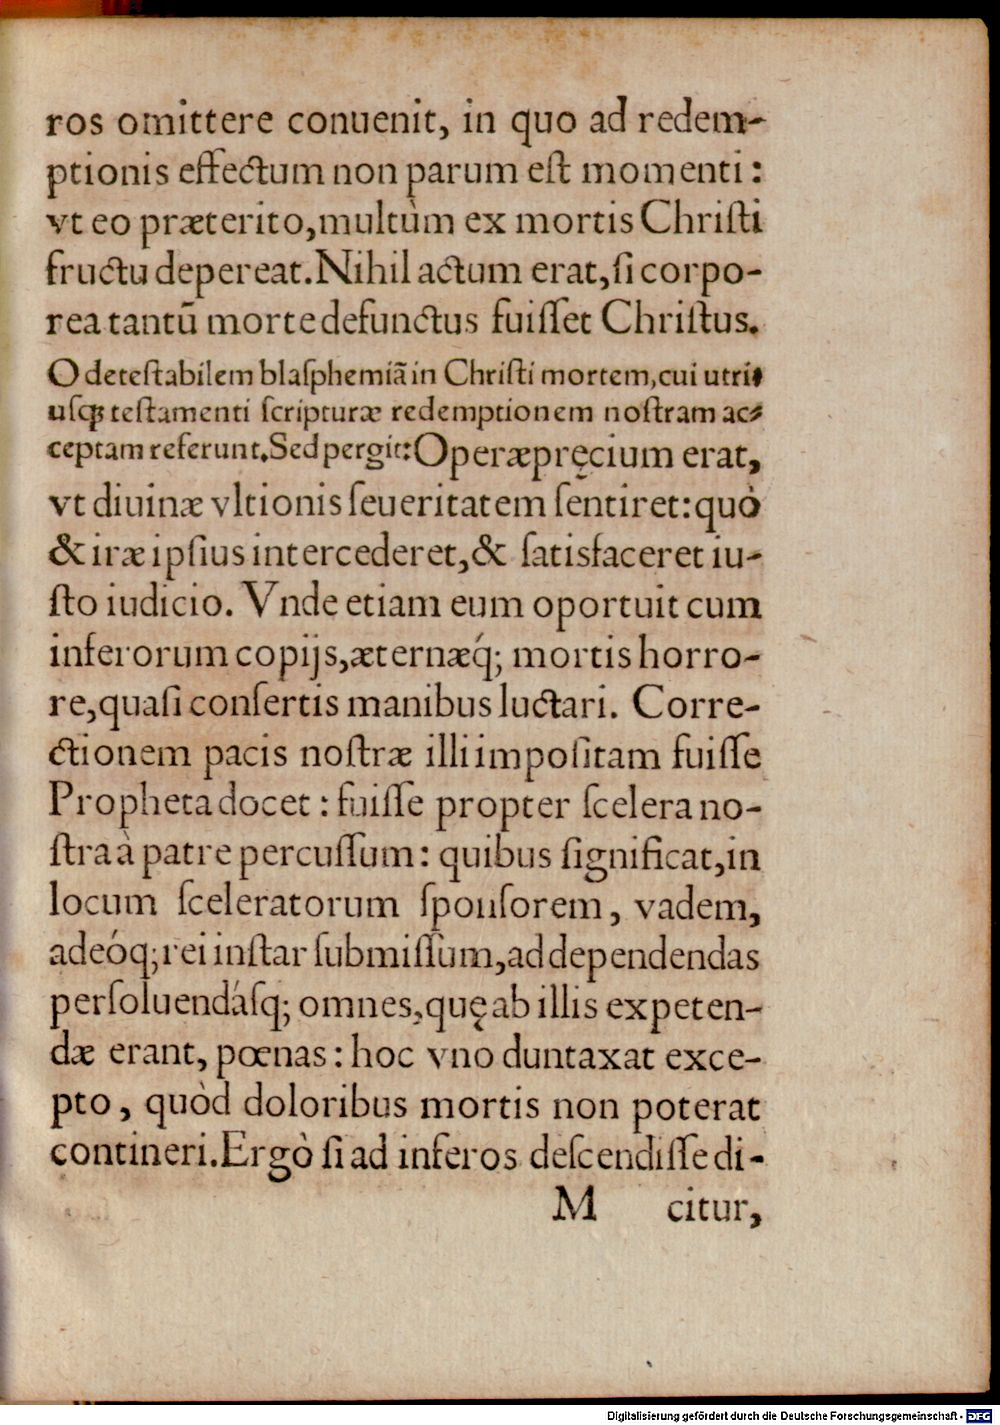 ros omittere conuenit, in quo ad redem-
ptionis effectum non parum est momenti:
vt eo præterito, multùm ex mortis Christi
fructu depereat. Nihil actum erat, si corpo-
rea tantũ morte defunctus fuisset Christus.
O detestabilem blasphemiã in Christi mortem, cui utri-
usq; testamenti scripturæ redemptionem nostram ac-
ceptam referunt. Sed pergit: Operæpręcium erat,
vt diuinæ vltionis seueritatem sentiret: quò
& iræ ipsius intercederet, & satisfaceret iu-
sto iudicio. Vnde etiam eum oportuit cum
inferorum copijs, æternæq́; mortis horro-
re, quasi consertis manibus luctari. Corre-
ctionem pacis nostræ illi impositam fuisse
Propheta docet: fuisse propter scelera no-
stra à patre percussum: quibus significat, in
locum sceleratorum sponsorem, vadem,
adeóq; rei instar submissum, ad dependendas
persoluendásq; omnes, quę ab illis expeten-
dæ erant, pœnas: hoc vno duntaxat exce-
pto, quòd doloribus mortis non poterat
contineri. Ergò si ad inferos descendisse di-
M citur,
Digitalisierung gefördert durch die Deutsche Forschungsgemeinschaft - DFG